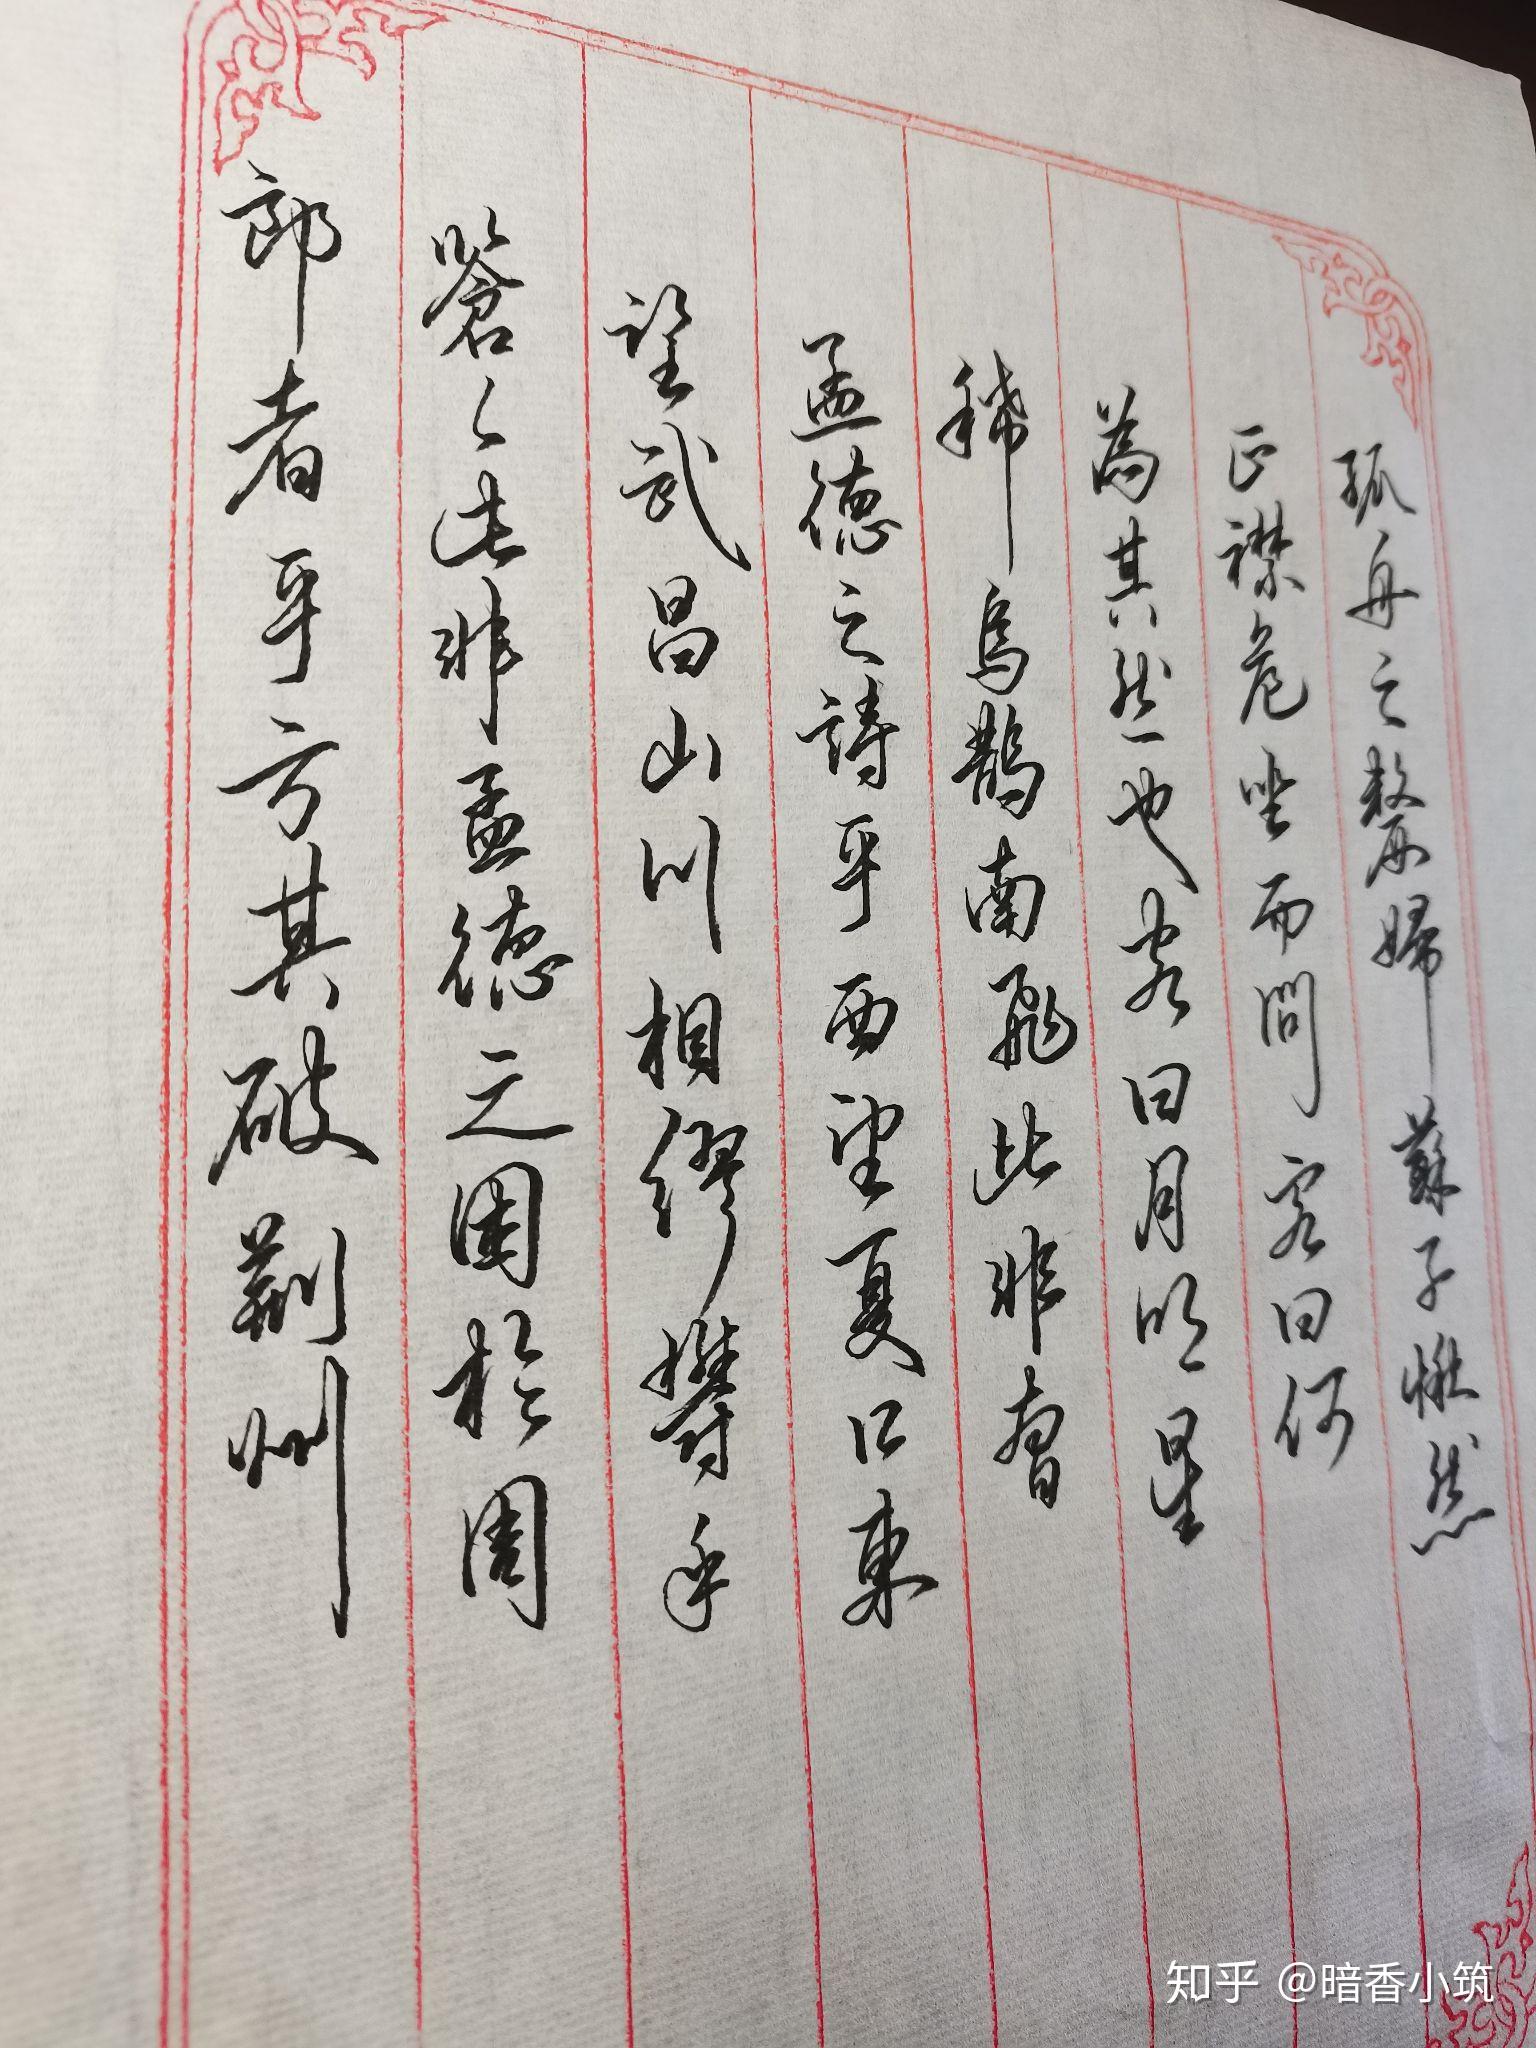 孤舟之嫠婦蘇子愀然
正襟危坐而問客曰何
為其然也客曰月明星
稀烏鵲南飛此非曹
孟德之詩乎西望夏口東
望武昌山川相繆鬱乎
蒼々此非孟德之困於周
郎者乎方其破荊州
知乎 @暗香小筑